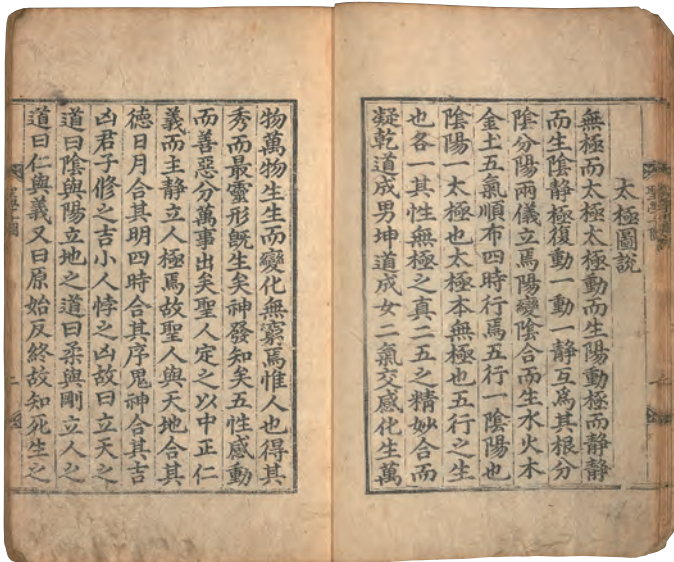 太極圖說
無極而太極太極動而生陽動極而靜靜
而生陰靜極復動一動一靜互爲其根分
陰分陽兩儀立焉陽變陰合而生水火木
金土五氣順布四時行焉五行一陰陽也
陰陽一太極也太極本無極也五行之生
也各一其性無極之真二五之精妙合而
凝乾道成男坤道成女二氣交感化生萬
物萬物生生而變化無窮焉惟人也得其
秀而最靈形旣生矣神發知矣五性感動
而善惡分萬事出矣聖人定之以中正仁
義而主靜立人極焉故聖人與天地合其
德日月合其明四時合其序鬼神合其吉
凶君子修之吉小人悖之凶故曰立天之
道曰陰與陽立地之道曰柔與剛立人之
道曰仁與義又曰原始反終故知死生之